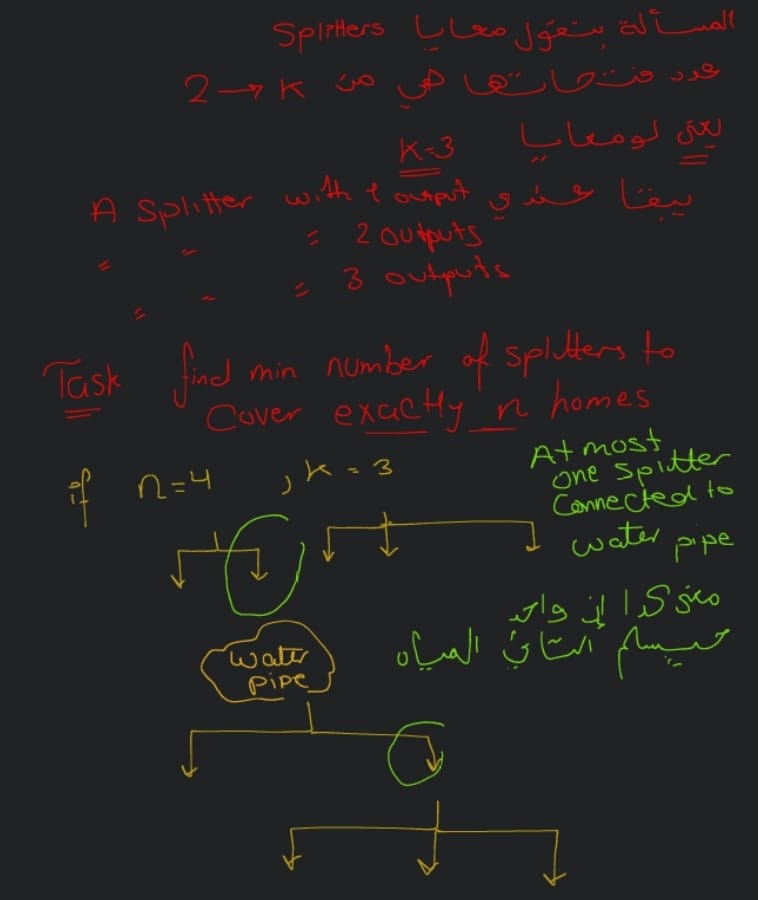 المسألة بتقول معايا Splitters
عدد فتحاتها هي من 2 → K
يعني لو معايا K=3
يبقا عندي A splitter with 1 output
〃 〃 = 2 outputs
〃 〃 = 3 outputs
Task find min number of splitters to
cover exactly n homes
if n=4 , k = 3
At most
one splitter
connected to
water pipe
معنى كدا إن واحد
حيسلم التاني المياه
water
pipe